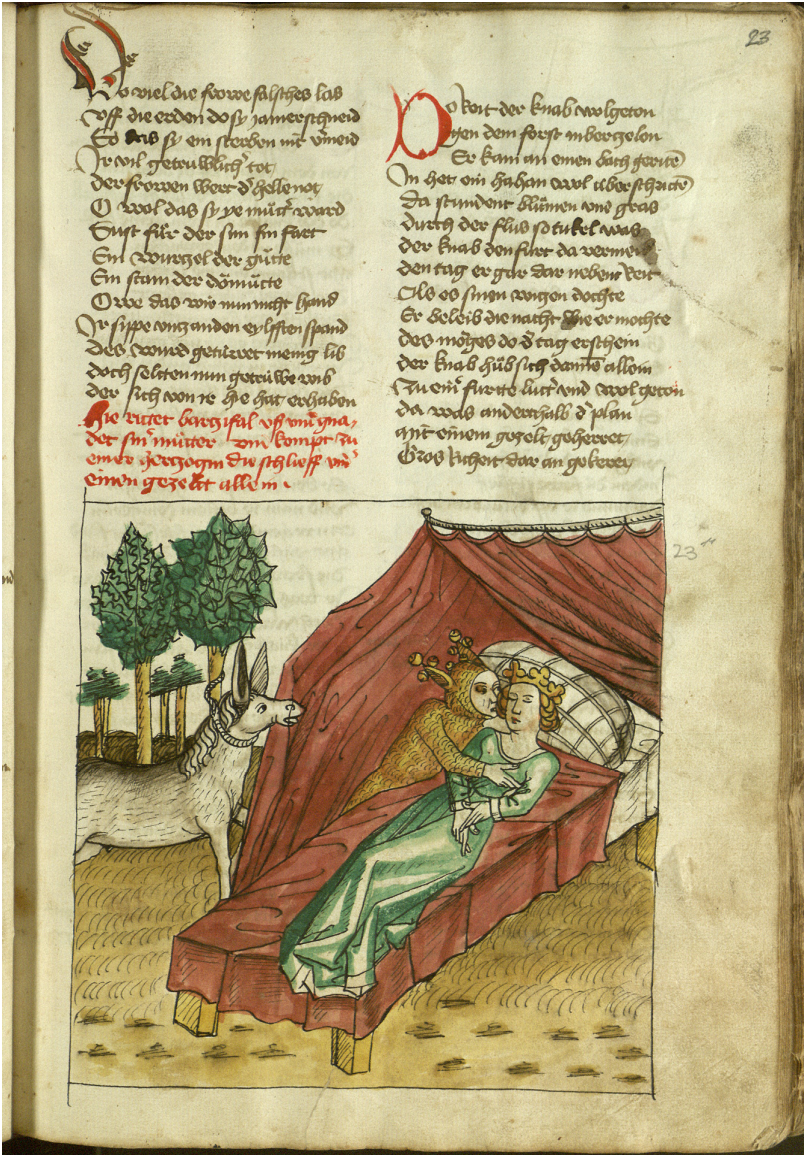 23
Do viel die frowe falsches las
Vff die erden do sy jamer schneid
So das sy ein sterben nit vermeid
Ir vil getruwlich tot
der frowen wert d' helle not
O wol das sy ye mutt' ward
Sust fur der sin fart
Ein wurczel der gutte
Ein stam der domutte
Owe das wir nun nicht hand
Ir sippe vncz an den eylfften spand
des wurd geturret menig lib
doch soltten nun getruwe wib
der sich von ir he hat erhaben
Hie rittet barczifal vff vnd gna
det sin' mutter vnd kompt zu
einer herczogin die schlieff vnd'
einen gezeltt allein
Do keit der knab wolgeton
gen dem forst in berczelon
Er kam an einen bach geritt
In het ein hahan wol uberschritt
da stundent blumen vnd gras
durch der flus so tukel was
der knab den furt da vermeid
den tag er gar dar neben reit
Als es sinen wiczen dochte
Er beleib die nacht wie er mochte
des morges do d' tag erschein
der knab hub sich dannen allein
Zu ein' furtte lutt' vnd wol geton
da was anderthalb d' plan
mit einem gezelt geherret
Gros richeit dar an gekerret
23